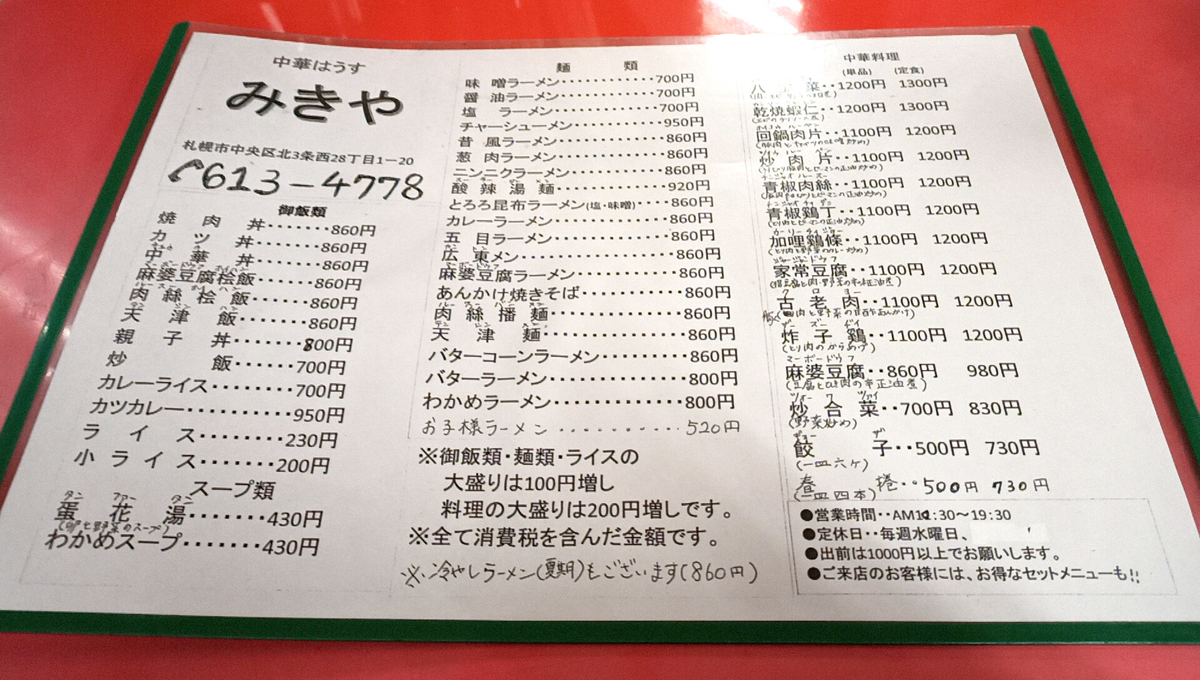 中華はうす
みきや
札幌市中央区北3条西28丁目1-20
613-4778
御飯類
焼肉丼・・・・・・・860円
カツ丼・・・・・・・860円
中華丼・・・・・・・860円
麻婆豆腐桧飯・・・・・・・860円
肉絲桧飯・・・・・・・860円
天津飯・・・・・・・860円
親子丼・・・・・・・800円
炒飯・・・・・・700円
カレーライス・・・・・・・700円
カツカレー・・・・・・・・950円
ライス・・・・・・・・230円
小ライス・・・・・・・200円
スープ類
タン ファー タン
蛋花湯・・・・・・・・430円
(卵と野菜のスープ)
わかめスープ・・・・・・・・430円
麺類
味噌ラーメン・・・・・・・・・・・・700円
醤油ラーメン・・・・・・・・・・・・700円
塩ラーメン・・・・・・・・・・・・700円
チャーシューメン・・・・・・・・・・・・950円
昔風ラーメン・・・・・・・・・・・・860円
葱肉ラーメン・・・・・・・・・・・・860円
ニンニクラーメン・・・・・・・・・・・・860円
酸辣湯麺・・・・・・・・・・・・920円
とろろ昆布ラーメン(塩・味噌)・・・・860円
カレーラーメン・・・・・・・・・・・・860円
五目ラーメン・・・・・・・・・・・・860円
広東メン・・・・・・・・・・・・860円
麻婆豆腐ラーメン・・・・・・・・・・・・860円
あんかけ焼きそば・・・・・・・・・・・・860円
肉絲播麺・・・・・・・・・・・・860円
天津麺・・・・・・・・・・・・860円
バターコーンラーメン・・・・・・・・・860円
バターラーメン・・・・・・・・・・・・800円
わかめラーメン・・・・・・・・・・・・800円
お子様ラーメン・・・・・・・・・・・・520円
※御飯類・麺類・ライスの
大盛りは100円増し
料理の大盛りは200円増しです。
※全て消費税を含んだ金額です。
※冷やしラーメン(夏期)もございます(860円)
中華料理
(単品) (定食)
八 菜・・1200円 1300円
乾焼蝦仁・・1200円 1300円
回鍋肉片・・1100円 1200円
炒肉片・・1100円 1200円
青椒肉絲・・1100円 1200円
青椒鶏丁・・1100円 1200円
加哩鶏條・・1100円 1200円
家常豆腐・・1100円 1200円
古老肉・・1100円 1200円
炸子鶏・・1100円 1200円
(とり肉のからあげ)
マーボードウフ
麻婆豆腐・・860円 980円
(豆腐とひき肉の辛正油煮)
炒合菜・・700円 830円
(野菜炒め)
餃子・・500円 730円
(一皿六ケ)
春捲・・500円 730円
(一皿4本)
●営業時間・・AM11:30～19:30
●定休日・・毎週水曜日、
●出前は1000円以上でお願いします。
●ご来店のお客様には、お得なセットメニューも!!